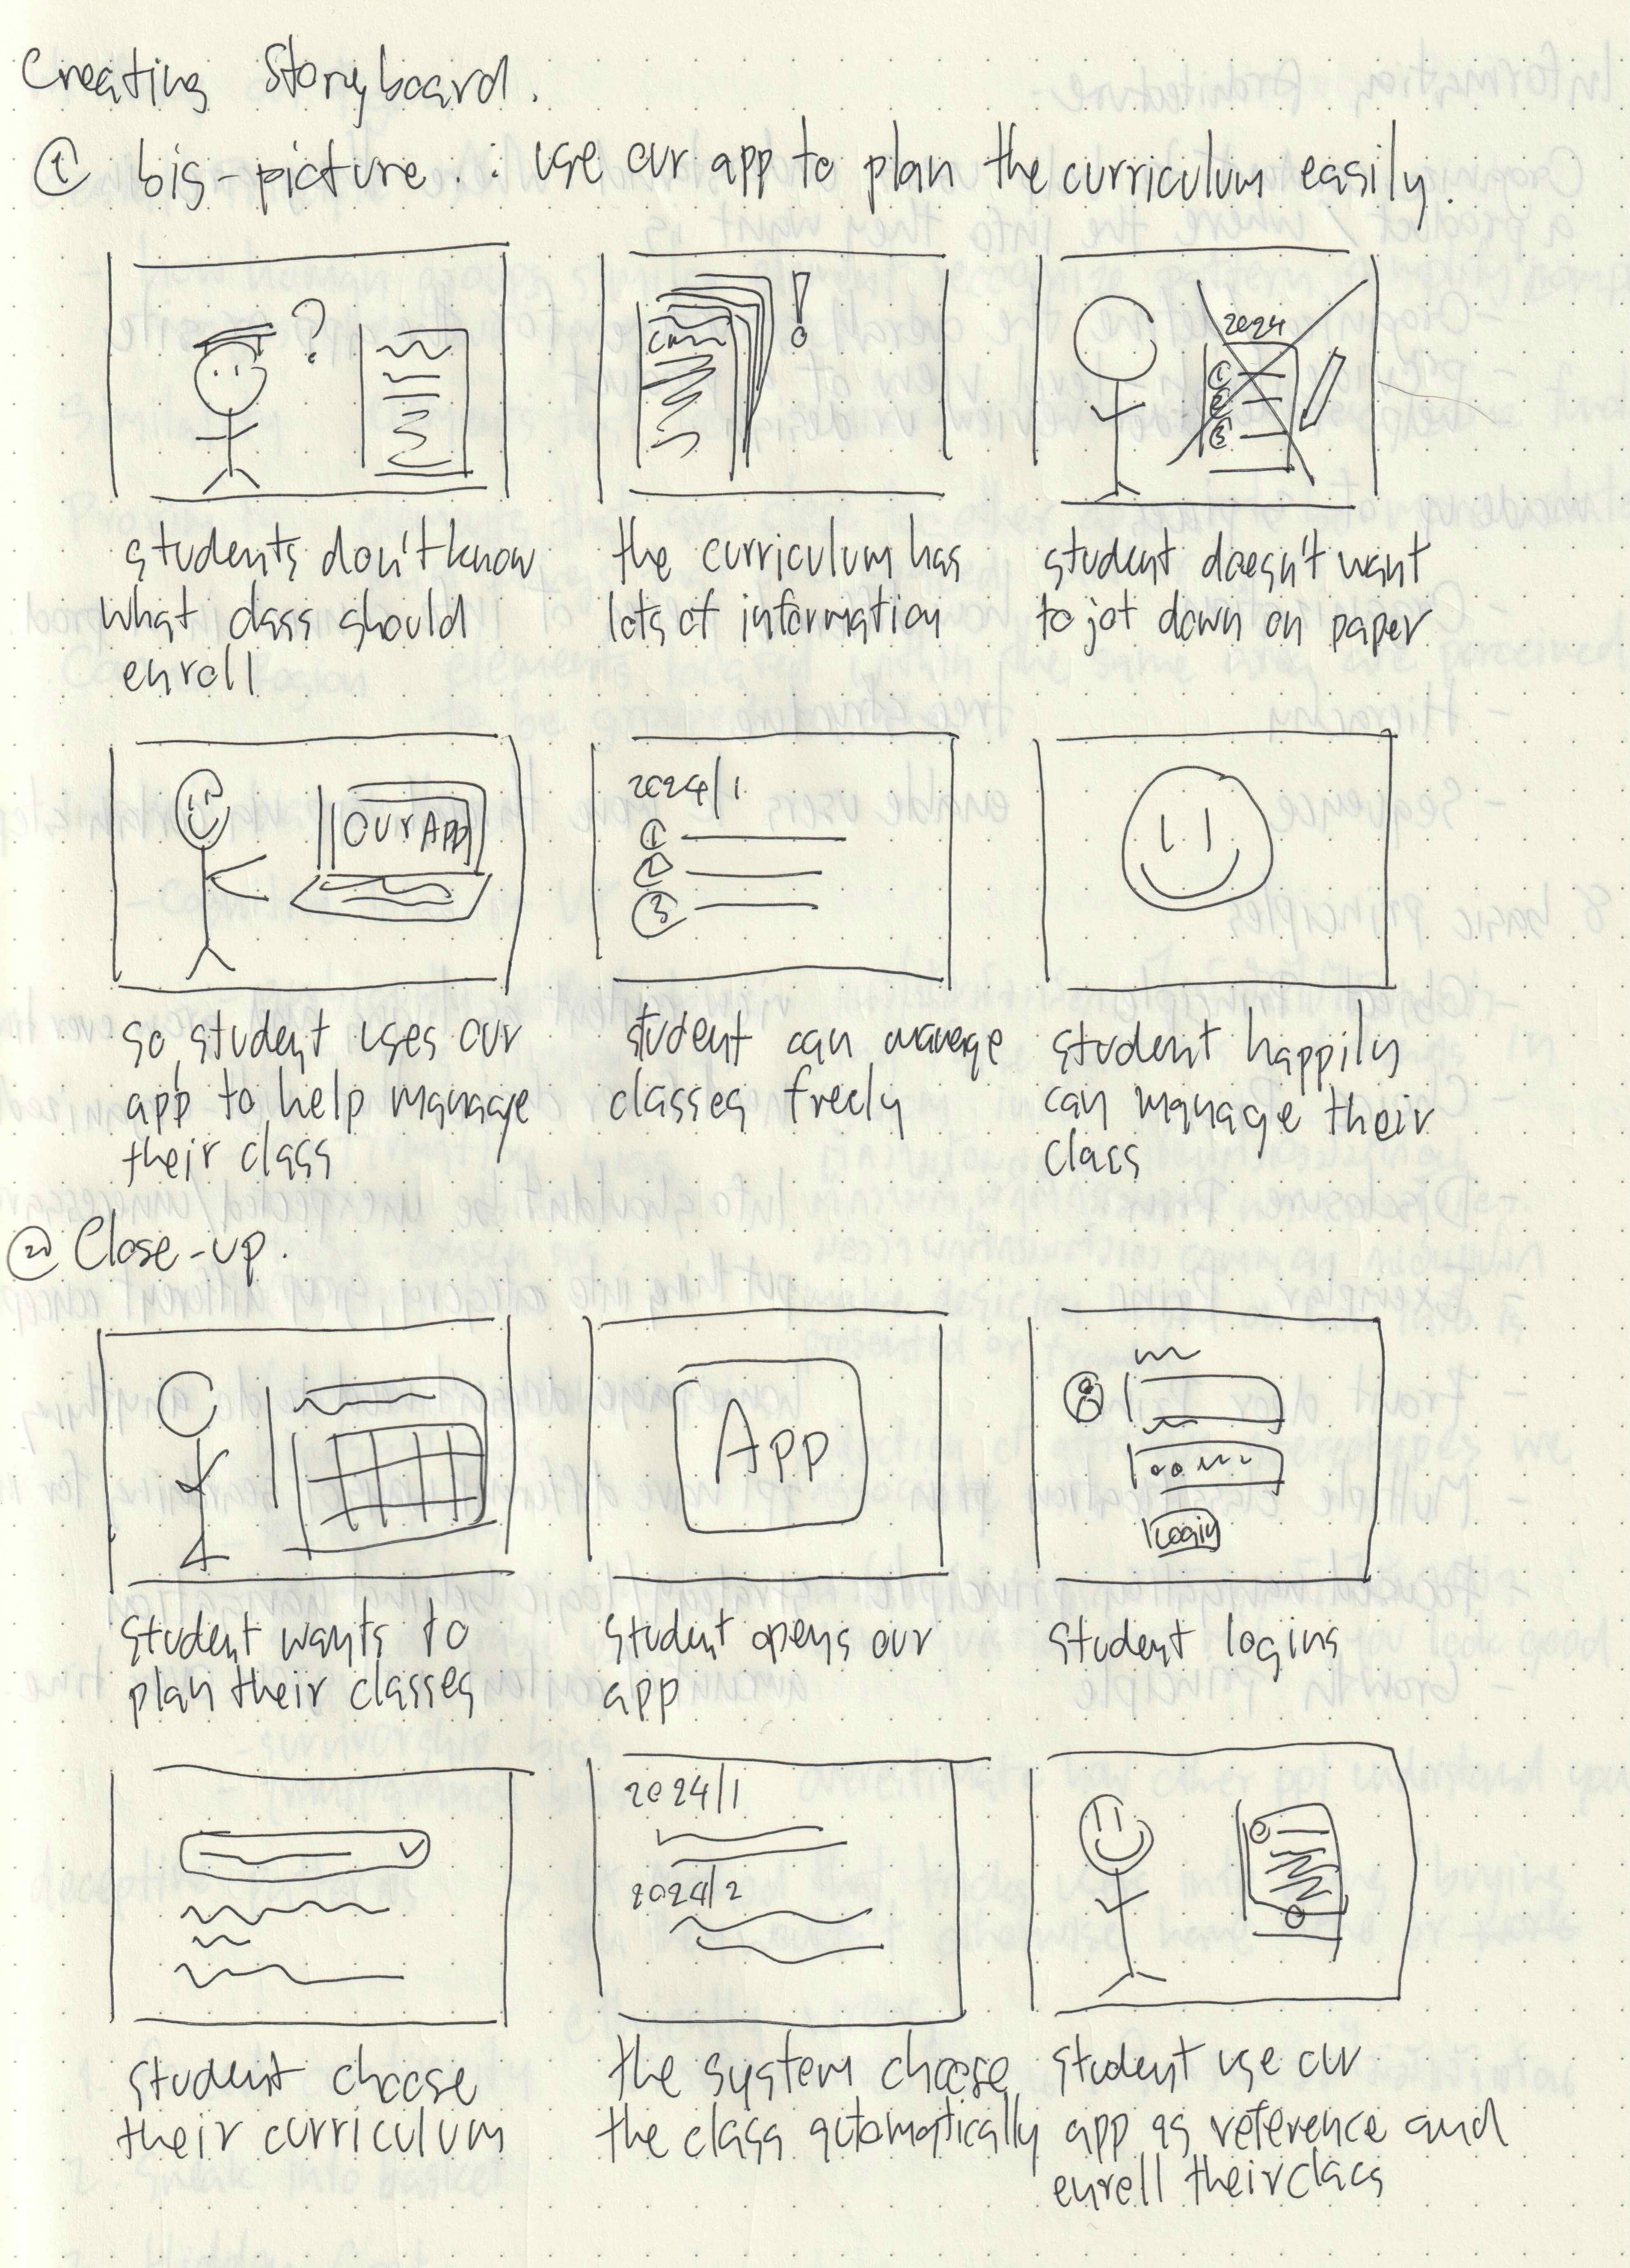 Creating Storyboard.
① big-picture : use our app to plan the curriculum easily.
?
!
2024
①
②
③
students don't know
what class should
enroll
the curriculum has
lots of information
student doesn't want
to jot down on paper
our App
2024/1
①
②
③
so, student uses our
app to help manage
their class
student can manage
classes freely
student happily
can manage their
class
② Close-up.
App
Login
student wants to
plan their classes
student opens our
app
student logins
2024/1
2024/2
student choose
their curriculum
the system choose
the class automatically
student use our
app as reference and
enroll their class